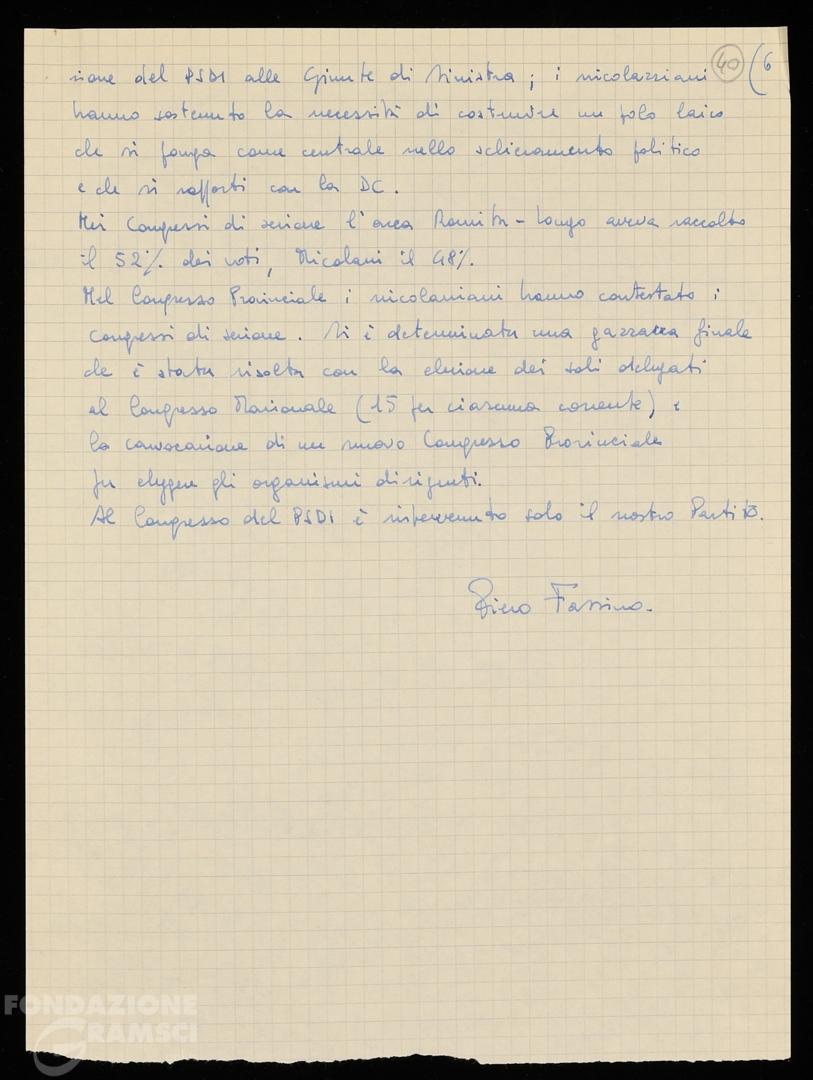 40 (6
zione del PSDI alle Giunte di Sinistra; i nicolazziani
hanno sostenuto la necessità di costruire un polo laico
che si ponga come centrale nello schieramento politico
e che si rapporti con la DC.
Nei Congressi di sezione l'area Romita-Longo aveva raccolto
il 52% dei voti, Nicolazzi il 48%.
Nel Congresso Provinciale i nicolazziani hanno contestato i
congressi di sezione. Si è determinata una gazzarra finale
che è stata risolta con la elezione dei soli delegati
al Congresso Nazionale (15 per ciascuna corrente) e
la convocazione di un nuovo Congresso Provinciale
per eleggere gli organismi dirigenti.
Al Congresso del PSDI è intervenuto solo il nostro Partito.
Piero Fassino.
FONDAZIONE
GRAMSCI